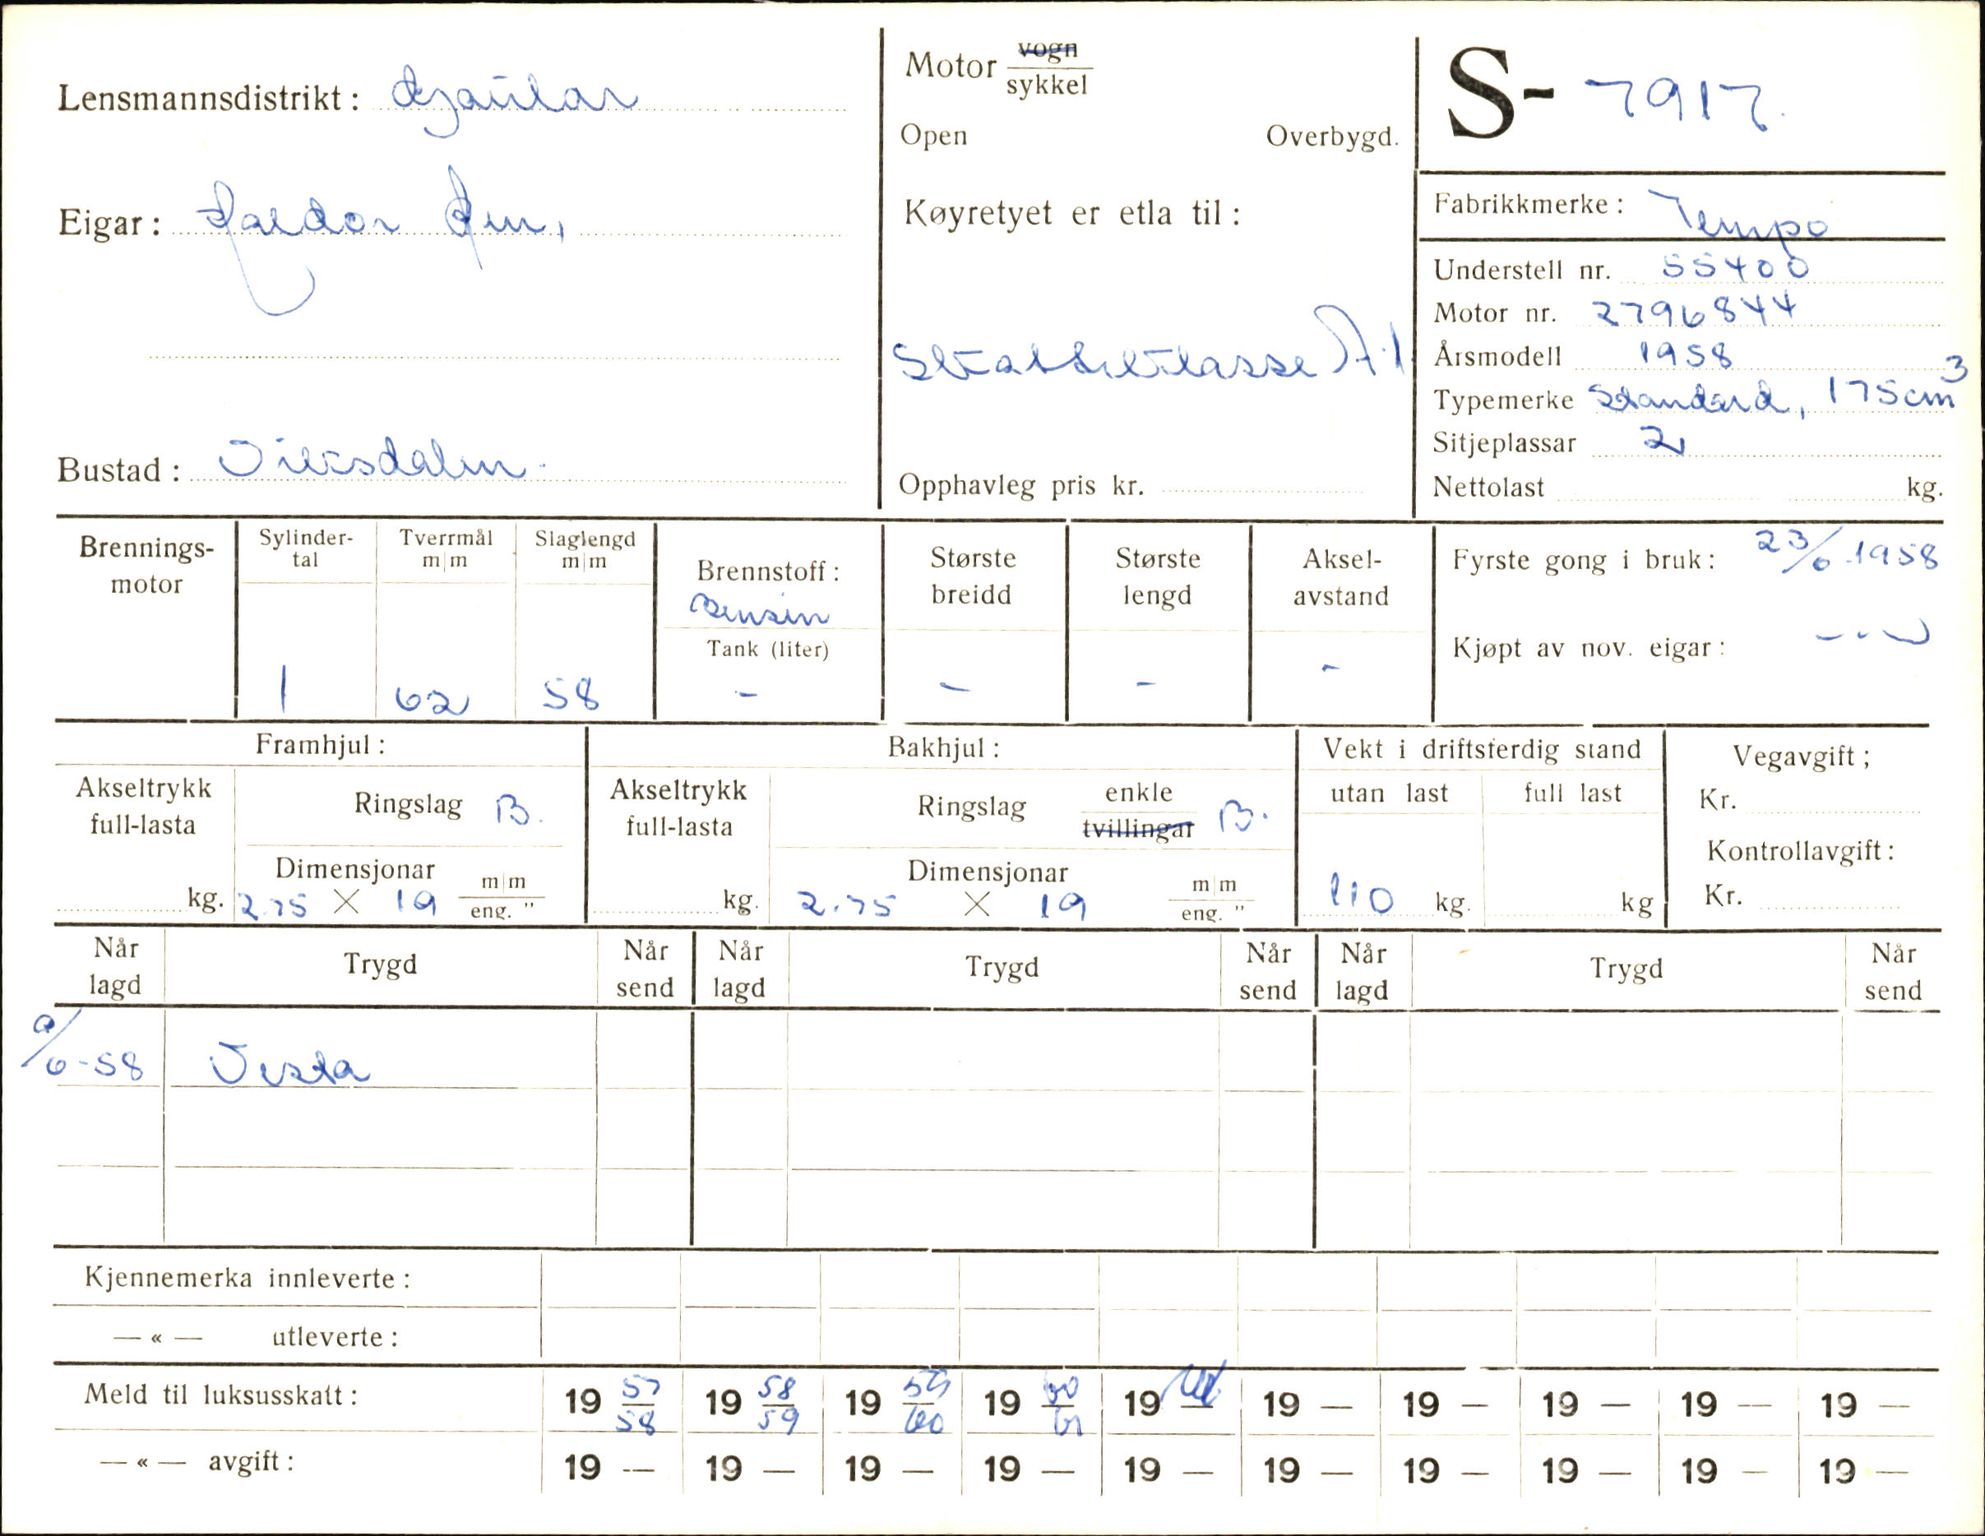 Lensmannsdistrikt: Gjaular
Eigar: Haldor Øen,
Bustad: Viksdalen.
Motor vogn
sykkel
Open Overbygd.
Køyretyet er etla til:
Skatteklasse A.1
Opphavleg pris kr.
S- 7917.
Fabrikkmerke: Tempo
Understell nr. 55400
Motor nr. 2796844
Årsmodell 1958
Typemerke Standard, 175cm³
Sitjeplassar 2
Nettolast kg.
Brennings-
motor
Sylinder-
tal
1
Tverrmål
m|m
62
Slaglengd
m|m
58
Brennstoff:
Bensin
Tank (liter)
-
Største
breidd
-
Største
lengd
-
Aksel-
avstand
-
Fyrste gong i bruk: 23/6-1958
Kjøpt av nov. eigar: -"-
Framhjul:
Akseltrykk
full-lasta
kg.
Ringslag B.
Dimensjonar m|m
2.75 X 19 eng. "
Bakhjul:
Akseltrykk
full-lasta
kg.
Ringslag enkle
tvillingar B.
Dimensjonar m|m
2.75 X 19 eng. "
Vekt i driftsferdig stand
utan last full last
110 kg. kg
Vegavgift;
Kr.
Kontrollavgift:
Kr.
Når lagd Trygd Når send Når lagd Trygd Når send Når lagd Trygd Når send
9/6-58 Vesta
Kjennemerka innleverte:
— « — utleverte:
Meld til luksusskatt: 19 57/58 19 58/59 19 59/60 19 60/61 19 — 19 — 19 — 19 — 19 — 19 —
— « — avgift: 19 — 19 — 19 — 19 — 19 — 19 — 19 — 19 — 19 — 19 —